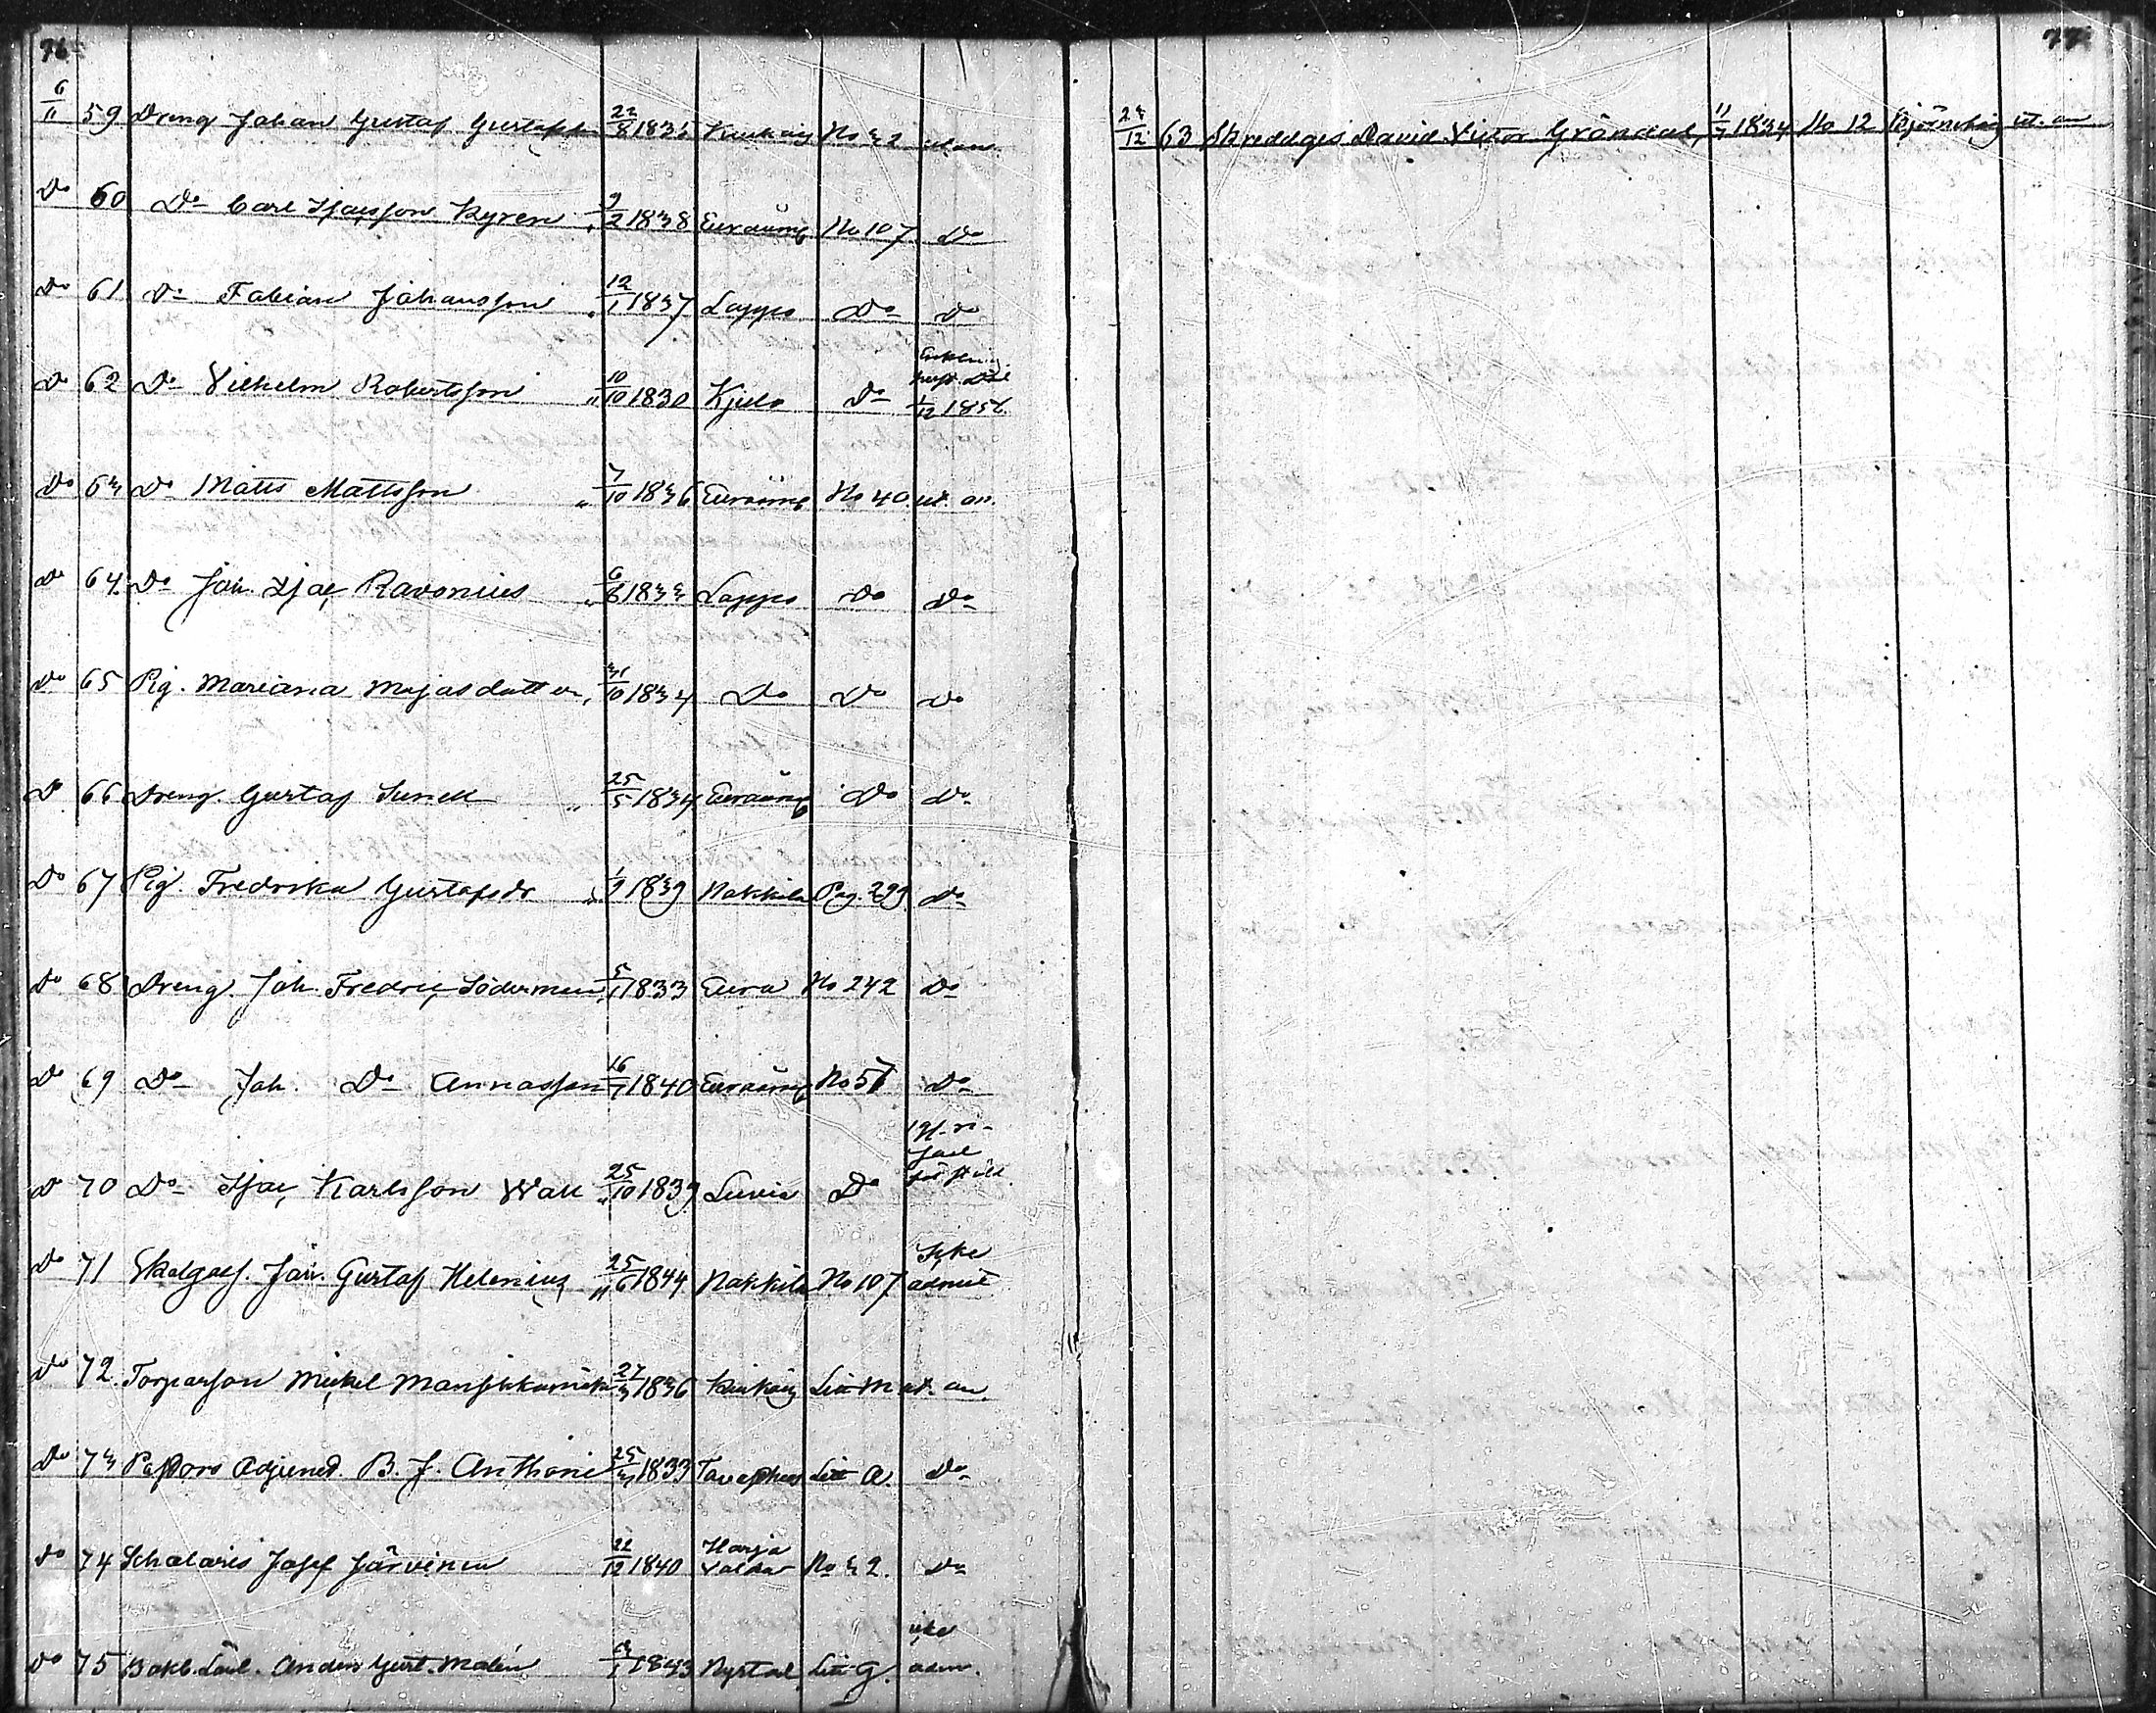 76
6/11 59 Dreng Johan Gustaf Gustafsson 22/8 1835 Kiukais No 32 ut. an.
Do 60 Do Carl Isacsson Kyren " 9/2 1838 Euraåmb No 107 Do
Do 61 Do Fabian Johansson " 12/1 1837 Lappo Do Do
Do 62 Do Vilhelm Robertsson " 10/10 1830 Kjulo Do 1/12 1858.
Do 63 Do Matts Mattsson " 7/10 1836 Euraåmb No 40 ut. an.
Do 64 Do Joh. Isac Ravonius " 6/8 1833 Lappo Do Do
Do 65 Pig. Mariana Majasdotter, 31/10 1834 Do Do Do
Do 66 Dreng. Gustaf Sunell " 25/5 1834 Euraåmb Do Do
Do 67 Pig. Fredrika Gustafsdr " 1/9 1839 Nakkila Pag. 299 Do
Do 68 Dreng. Joh. Fredric Söderman, 5/1 1833 Eura No 242 Do
Do 69 Do Joh. Do Annasson 16/7 1840 Euraåmb No 57 Do
Do 70 Do Isac Karlsson Wall " 25/10 1839 Luvia Do
Do 71 Joh. Gustaf Helenius " 25/6 1844 Nakkila No 107 Icke admit
Do 72. Torparson Mickel 27/3 1836 Kiukais Litt M ut. an.
Do 73 Pastors Adjunct. B. J. Anthoni 25/3 1833 Tavasthus Litt A. Do
Do 74 Scholaris Josef Järvinen 22/12 1840 Harjavalda No 32. Do
Do 75 Bokb. Lärl. Anders Gust. Malén 1843 Nystad Litt G. icke adm.
77
23/12 63 Skreddges. David Victor Gröndal, 11/7 1834 No 12 Björneborg ut. an